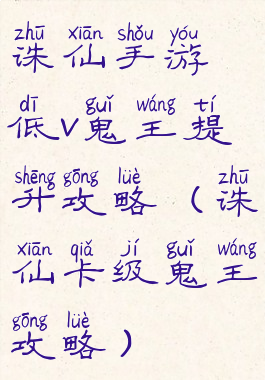 zhū xiān shǒu yóu
诛仙手游
dī guǐ wáng tí
低V鬼王提
shēng gōng lüè zhū
升攻略（诛
xiān qiǎ jí guǐ wáng
仙卡级鬼王
gōng lüè
攻略）